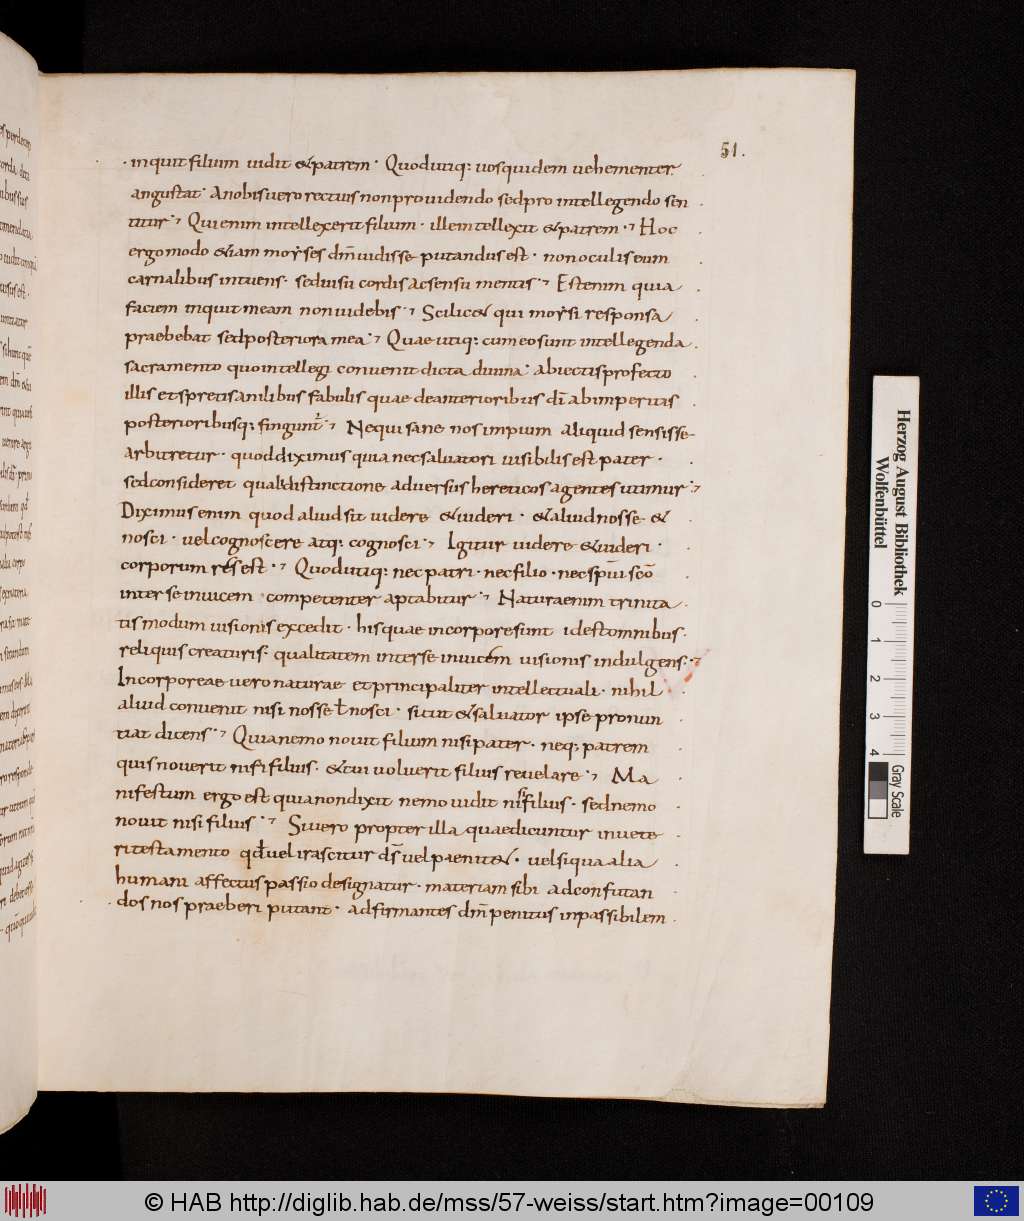 51.
inquit filium uidit & patrem · Quod utiq: uos quidem uehementer
angustat · A nobis uero rectius non pro uidendo sed pro intellegendo sen
titur · Qui enim intellexerit filium · ille intellexit & patrem · Hoc
ergo modo & iam moyses dm̄ uidisse putandus est · non oculis eum
carnalibus intuens · sed uisu cordis ac sensu mentis · Est enim quia
faciem inquit meam non uidebis · Scilic& qui moysi responsa
praebebat sed posteriora mea · Quae utiq: cum eo sunt intellegenda
sacramento quo intellegi conuenit dicta diuina · abiectis profecto
illis et spretis anilibus fabulis quae de anterioribus dī ab imperitas
posterioribusq: fingunt̄ · Ne qui sane nos impium aliquid sensisse
arbitretur · quod diximus quia nec saluatori uisibilis est pater ·
sed consideret quali distinctione aduersus hereticos agentes utimur ·
Diximus enim quod aliud sit uidere & uideri · & aliud nosse &
nosci · uel cognoscere atq: cognosci · Igitur uidere & uideri ·
corporum res est · Quod utiq: nec patri · nec filio · nec spūi scō
inter se inuicem competenter aptabitur · Natura enim trinita
tis modum uisionis excedit · his quae in corpore sunt id est omnibus ·
reliquis creaturis · qualitatem inter se inuicem uisionis indulgens ·
Incorporeae uero naturae et principaliter intellectuali · nihil
aliud conuenit nisi nosse ł nosci · sicut & saluator ipse pronun
tiat dicens · Quia nemo nouit filium nisi pater · neq: patrem
quis nouerit nisi filius · & cui uoluerit filius reuelare · Ma
nifestum ergo est quia non dixit nemo uidit nisi filius · sed nemo
nouit nisi filius · Si uero propter illa quae dicuntur in uete
ri testamento qđ uel irascitur ds̄ uel paenit& · uel siqua alia
humani affectus passio designatur · materiam sibi ad confutan
dos nos praeberi putant · adfirmantes dm̄ penitus inpassibilem
Herzog August Bibliothek
Wolfenbüttel
0 1 2 3 4
Gray Scale
© HAB http://diglib.hab.de/mss/57-weiss/start.htm?image=00109